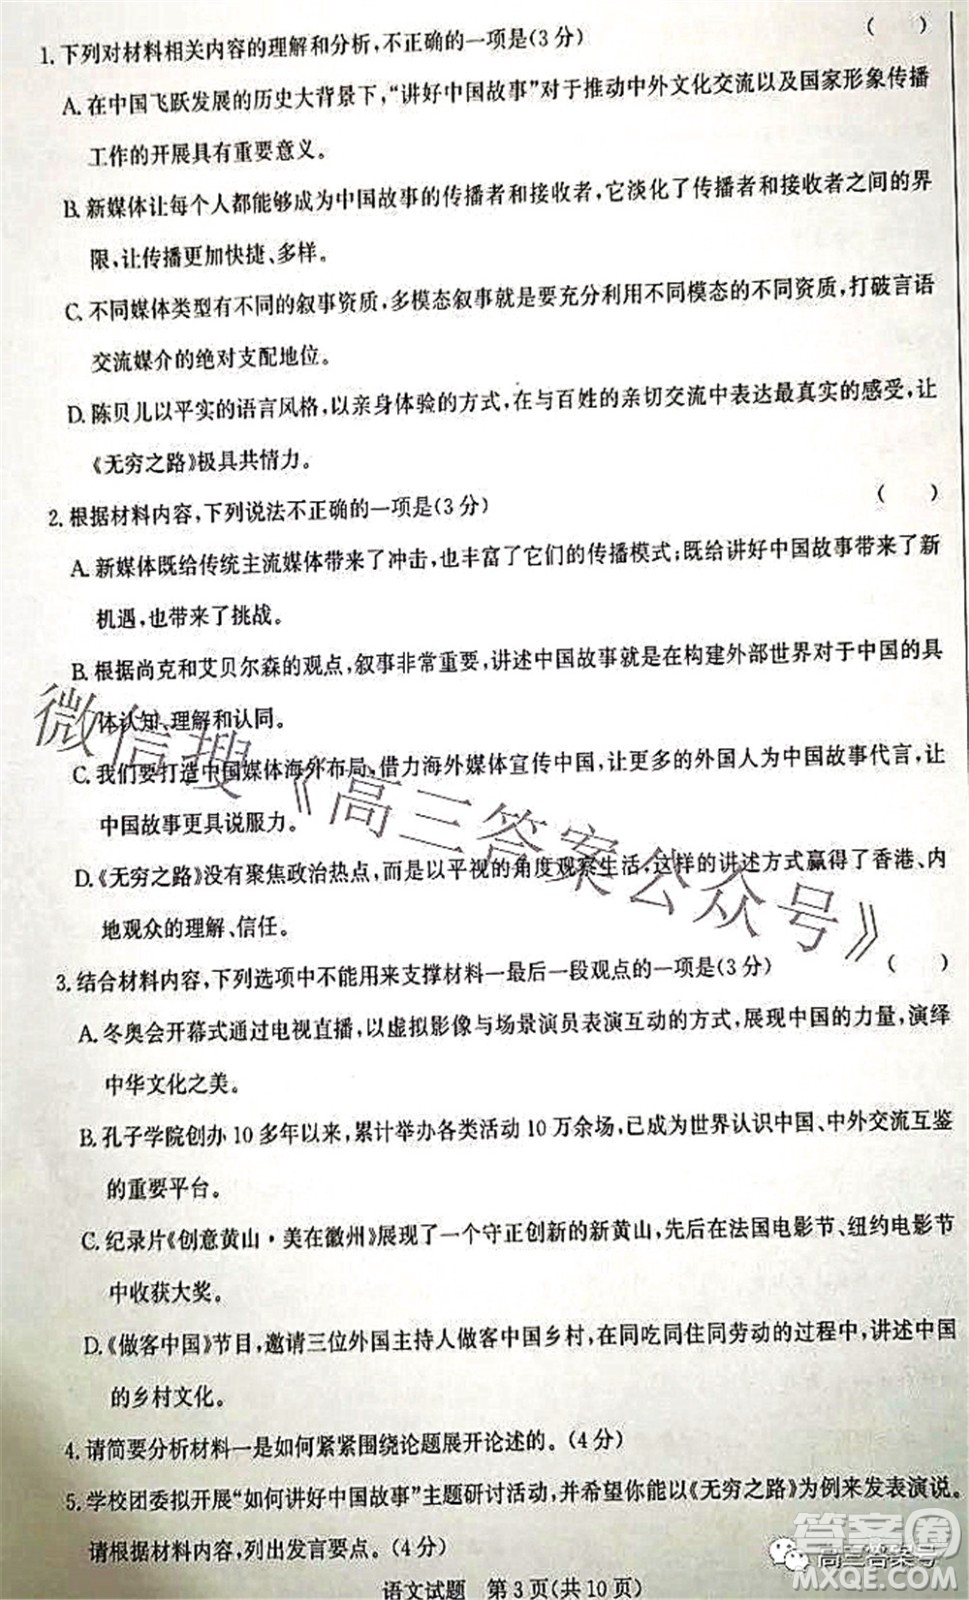 1. 下列对材料相关内容的理解和分析,不正确的一项是(3分) (  )
A. 在中国飞跃发展的历史大背景下,“讲好中国故事”对于推动中外文化交流以及国家形象传播
工作的开展具有重要意义。
B. 新媒体让每个人都能够成为中国故事的传播者和接收者,它淡化了传播者和接收者之间的界
限,让传播更加快捷、多样。
C. 不同媒体类型有不同的叙事资质,多模态叙事就是要充分利用不同模态的不同资质,打破言语
交流媒介的绝对支配地位。
D. 陈贝儿以平实的语言风格,以亲身体验的方式,在与百姓的亲切交流中表达最真实的感受,让
《无穷之路》极具共情力。
2. 根据材料内容,下列说法不正确的一项是(3分) (  )
A. 新媒体既给传统主流媒体带来了冲击,也丰富了它们的传播模式;既给讲好中国故事带来了新
机遇,也带来了挑战。
B. 根据尚克和艾贝尔森的观点,叙事非常重要,讲述中国故事就是在构建外部世界对于中国的具
体认知、理解和认同。
C. 我们要打造中国媒体海外布局,借力海外媒体宣传中国,让更多的外国人为中国故事代言,让
中国故事更具说服力。
D.《无穷之路》没有聚焦政治热点,而是以平视的角度观察生活,这样的讲述方式赢得了香港、内
地观众的理解、信任。
微信搜《高三答案公众号》
3. 结合材料内容,下列选项中不能用来支撑材料一最后一段观点的一项是(3分) (  )
A. 冬奥会开幕式通过电视直播,以虚拟影像与场景演员表演互动的方式,展现中国的力量,演绎
中华文化之美。
B. 孔子学院创办10多年以来,累计举办各类活动10万余场,已成为世界认识中国、中外交流互鉴
的重要平台。
C. 纪录片《创意黄山·美在徽州》展现了一个守正创新的新黄山,先后在法国电影节、纽约电影节
中收获大奖。
D.《做客中国》节目,邀请三位外国主持人做客中国乡村,在同吃同住同劳动的过程中,讲述中国
的乡村文化。
4. 请简要分析材料一是如何紧紧围绕论题展开论述的。(4分)
5. 学校团委拟开展“如何讲好中国故事”主题研讨活动,并希望你能以《无穷之路》为例来发表演说。
请根据材料内容,列出发言要点。(4分)
答案圈
高三答案号
MXQE.COM
语文试题 第3页(共10页)